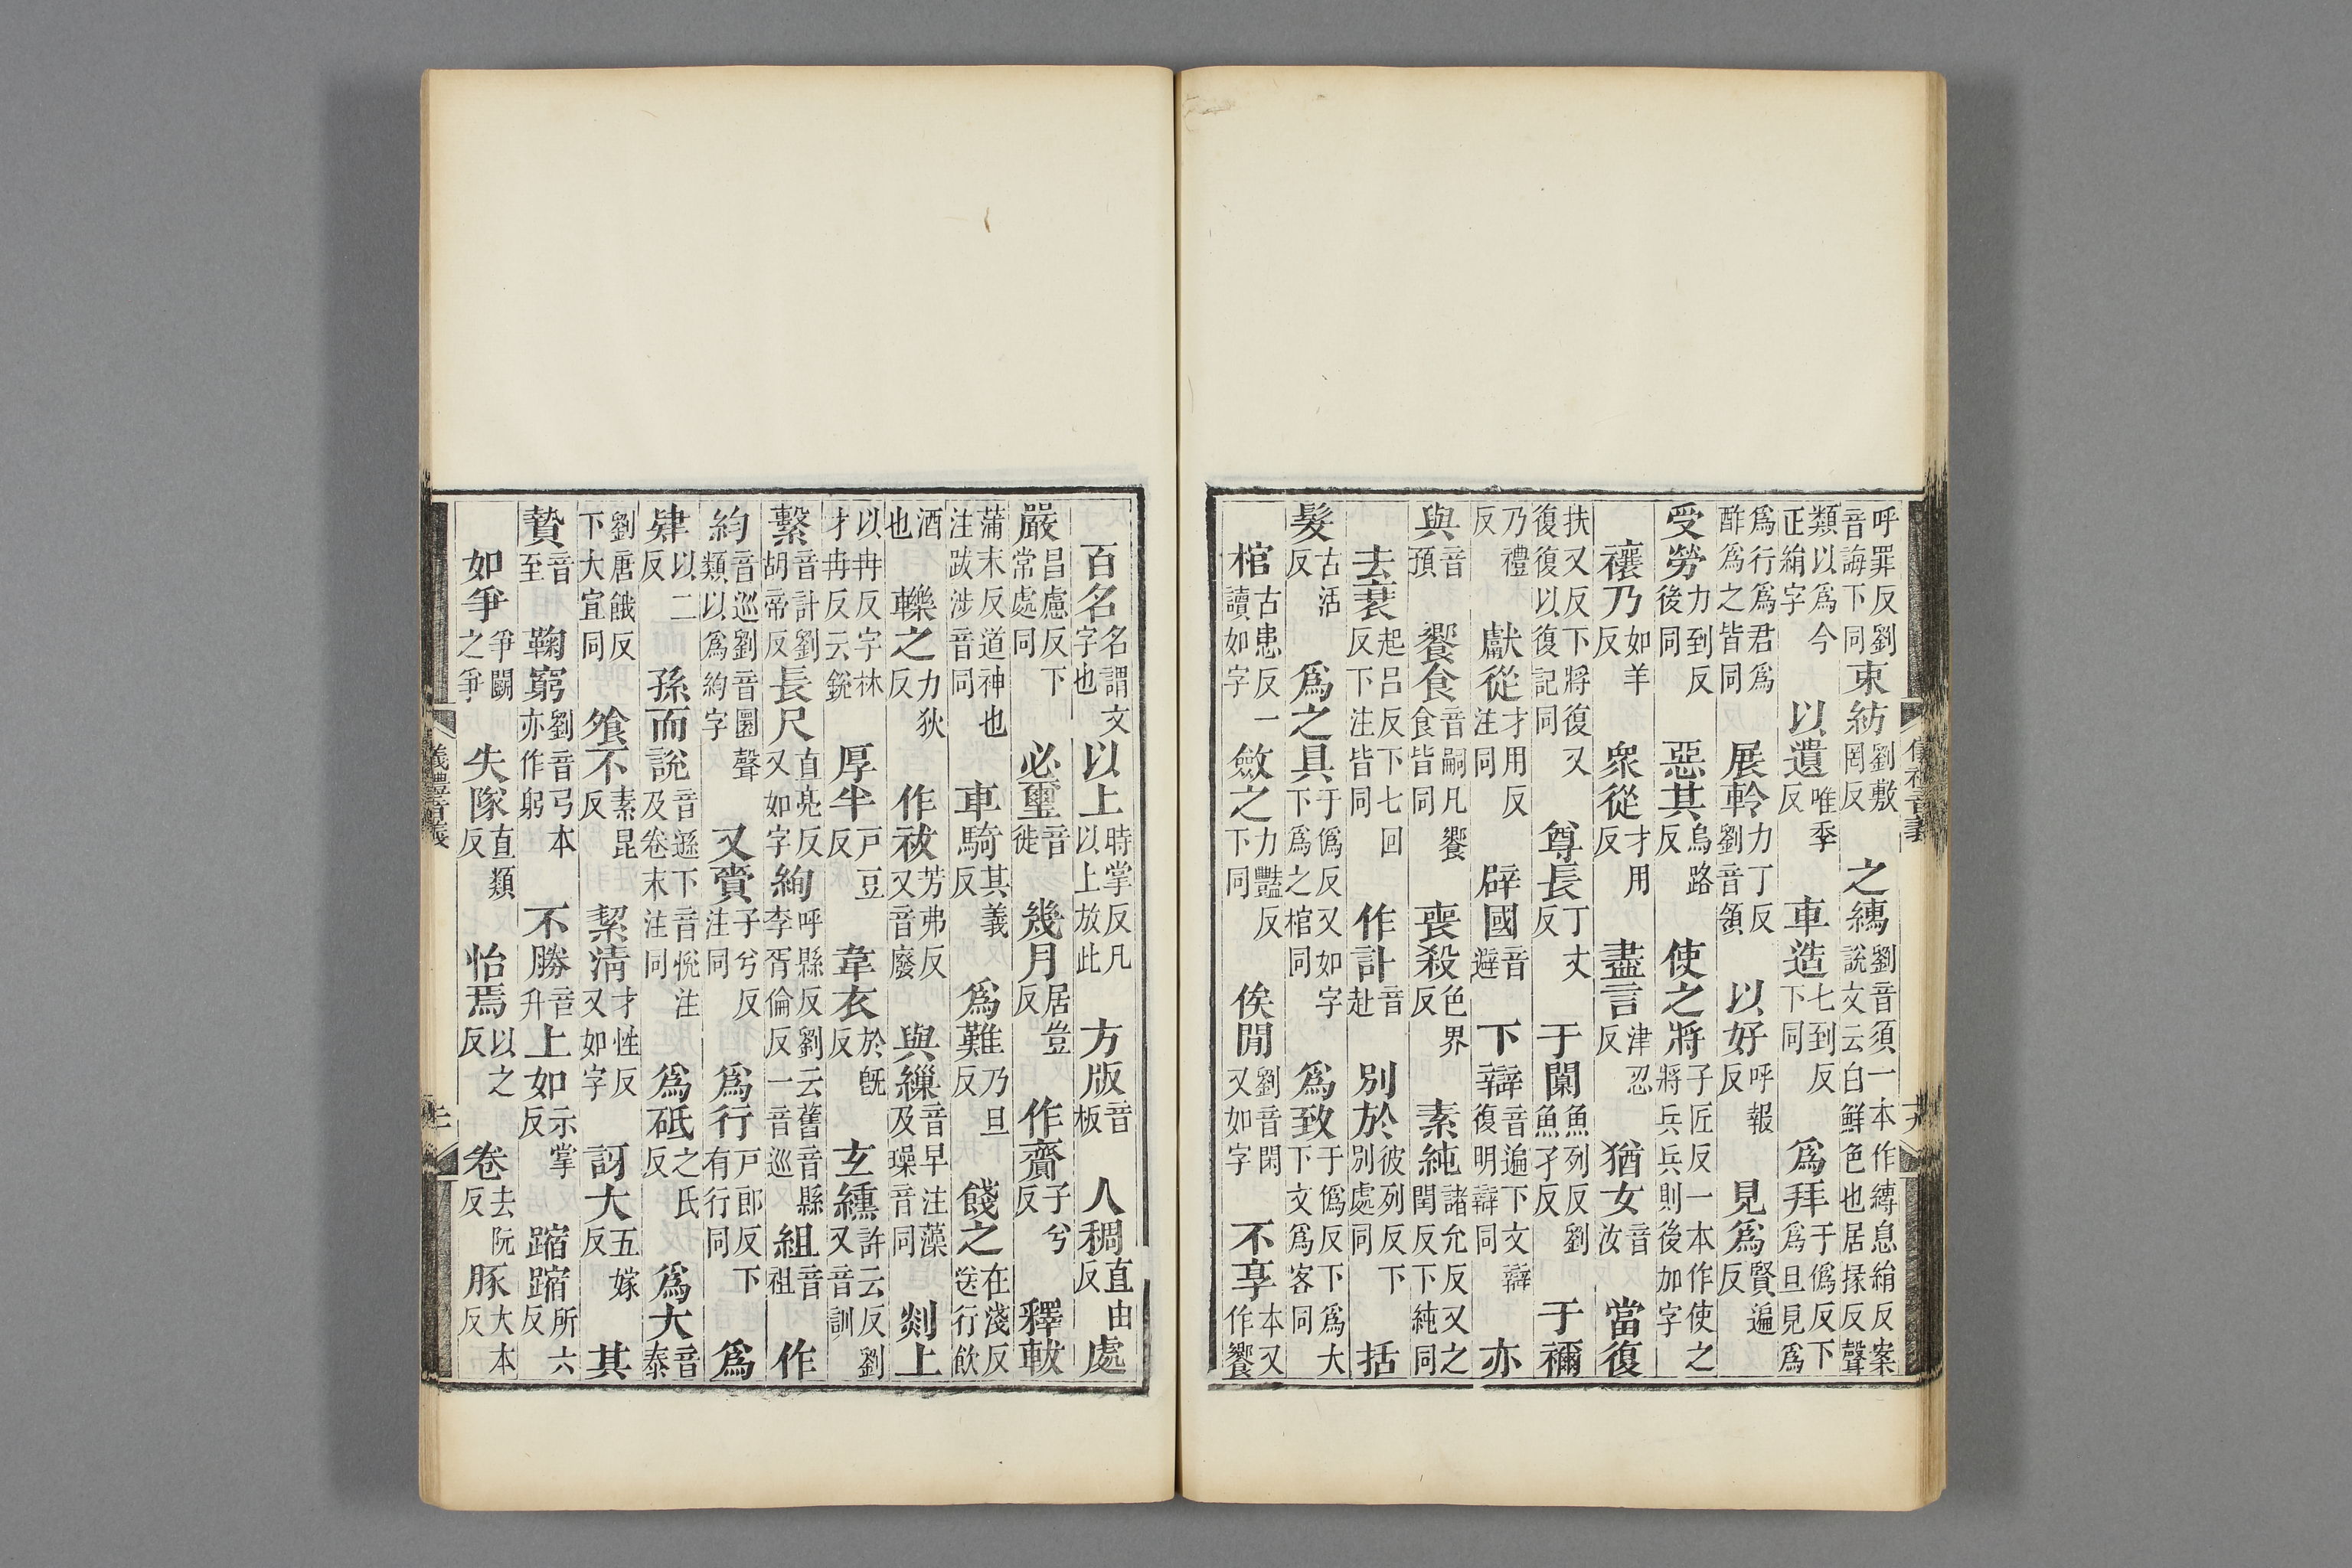 呼罪反劉音誨下同束紡劉敷罔反之縳劉音須一本作縛息絹反案說文云白鮮色也居掾反聲
類以爲今正絹字以遺唯季反車造七到反下同爲拜于僞反下爲旦見爲
爲行爲君爲酢爲之皆同展軨力丁反劉音領以好呼報反見爲賢遍反
受勞力到反後同惡其烏路反使之將子匠反一本作使之將兵兵則後加字
禳乃如羊反衆從才用反盡言津忍反猶女音汝當復
扶又反下將復又復復以復記同尊長丁丈反于闑魚列反劉魚孑反于禰
乃禮反獻從才用反注同辟國音避下辯音遍下文辯復明辯同亦
與音預饗食音嗣凡饗食皆同喪殺色界反素純諸允反又之閏反下純同
去衰起呂反下七回反下注皆同作計音赴別於彼列反下別處同括
髮古活反爲之具于僞反又如字下爲之棺同爲致于僞反下爲大下文爲客同
棺古患反一讀如字斂之力豔反下同俟閒劉音閑又如字不享本又作饗
儀禮音義
十九
百名名謂文字也以上時掌反凡以上放此方版音板人稠直由反處
嚴昌慮反下常處同必璽音徙幾月居豈反作齎子兮反釋軷
蒲末反道神也注跋涉音同車騎其義反爲難乃旦反餞之在淺反送行飲
酒也轢之力狄反作祓芳弗反又音廢與繅音早注藻及璪音同剡上
以冉反字林才冉反云銳厚半戶豆反韋衣於旣反玄纁許云反劉又音訓
繫音計劉胡帝反長尺直亮反又如字絢呼縣反劉云舊音縣李胥倫反一音巡組音祖作
約音巡劉音圜聲類以爲絇字又賫子兮反注同爲行戶郎反下有行同爲
肆以二反孫而說音遜下音悅注及卷末注同爲砥之氏反爲大音泰
劉唐餓反下大宜同飧不素昆反絜清才性反又如字訝大五嫁反其
贄音至鞠窮劉音弓本亦作躬不勝音升上如示掌反蹜蹜所六反
如爭爭鬭之爭失隊直類反怡焉以之反卷去阮反豚大本反
儀禮音義
二十